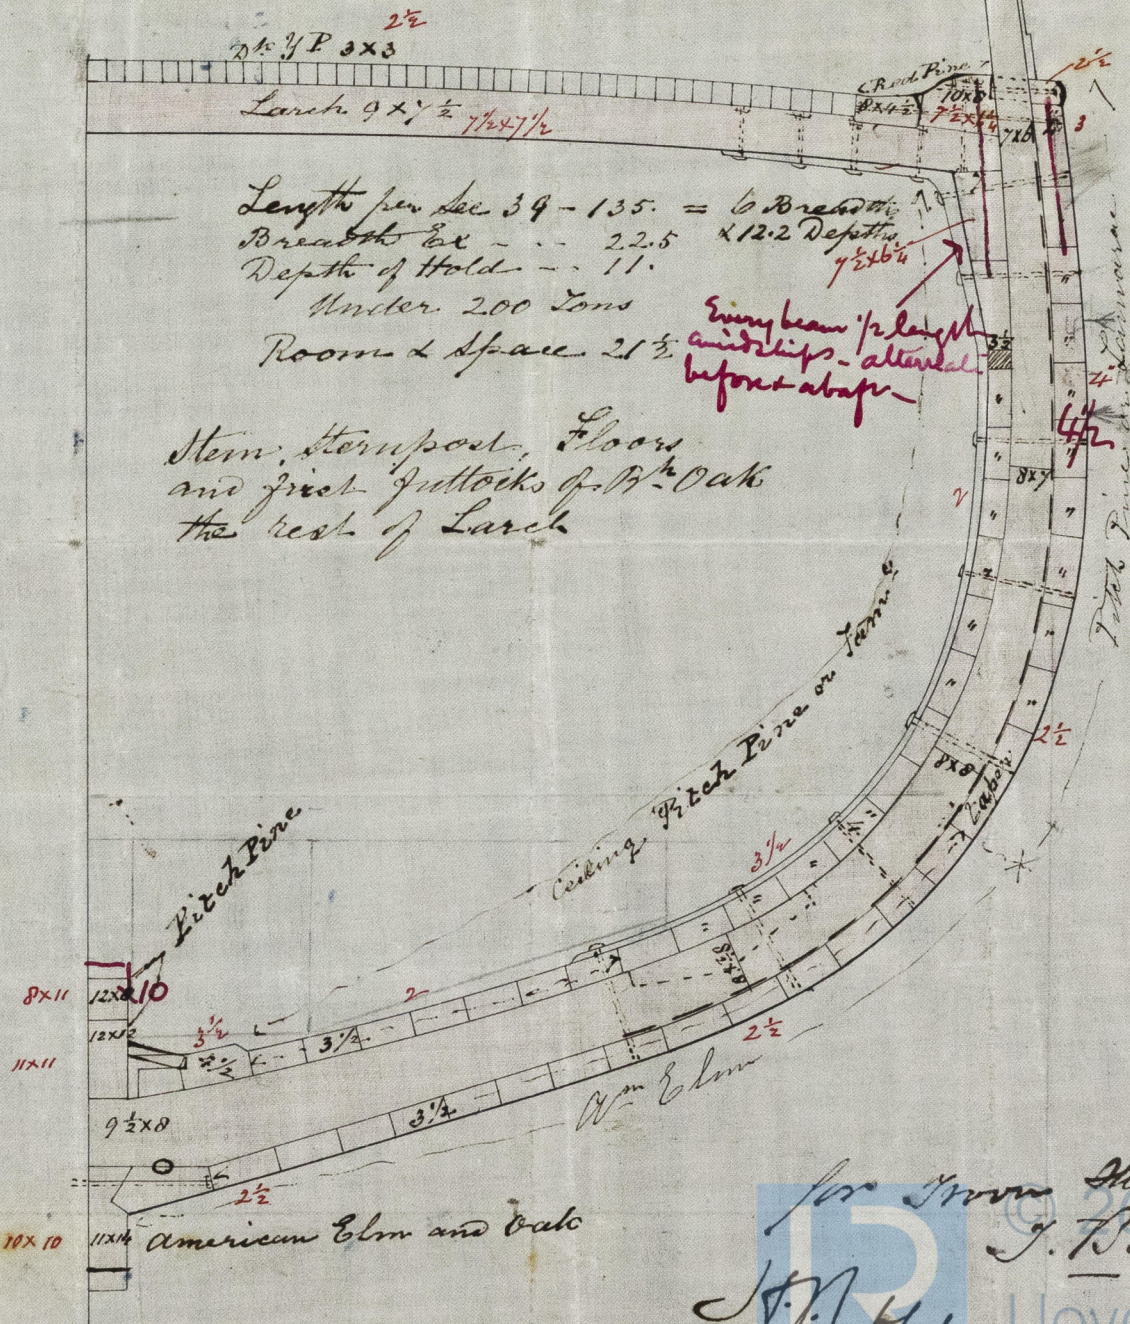 2½
Dk Y.P. 3x3
Larch 9 x 7½
7½x7½
Red Pine
8x4½
10x8
7½x
7x6
2½
3
Length per Sec 39 - 135. = 6 Breadths
Breadth Ex - - - 22.5 & 12.2 Depths
Depth of Hold - - 11.
Under 200 Tons
Room & Space 21½
7½x6¼
Every beam ½ length
amidships - alternate
before & abaft -
3½
4"
4½
8x7
2
Stem, Sternpost, Floors
and first futtocks of Bh Oak
the rest of Larch
Pitch Pine or
Ceiling Pitch Pine or
2½
8x8
Taper
3½
Pitch Pine
8x11
12x
x10
12x12
11x11
3½
2
3½
8½
2½
Am Elm
9½x8
3½
2½
10x10
11x14
American Elm and Oak
for Troon
©
J. B.